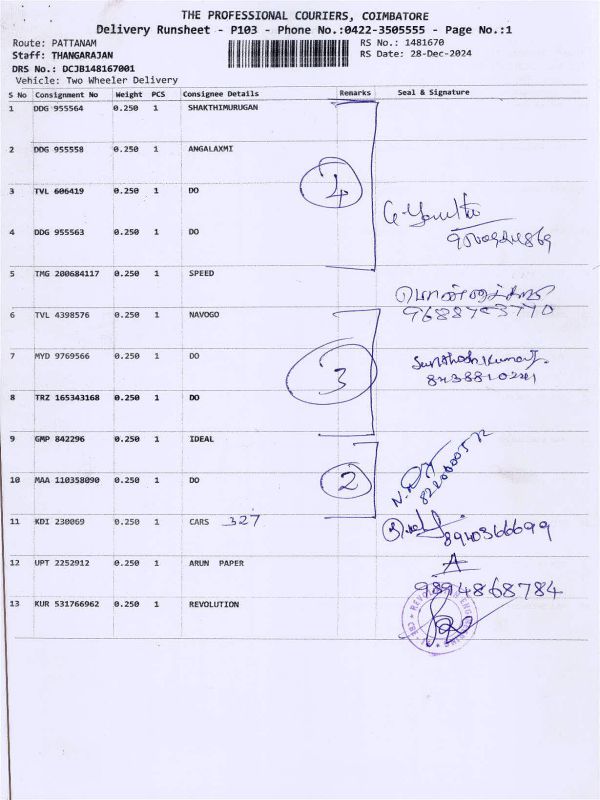 THE PROFESSIONAL COURIERS, COIMBATORE
Delivery Runsheet - P103 - Phone No.:0422-3505555 - Page No.:1
Route: PATTANAM RS No.: 1481670
Staff: THANGARAJAN RS Date: 28-Dec-2024
DRS No.: DCJB148167001
Vehicle: Two Wheeler Delivery
S No Consignment No Weight PCS Consignee Details Remarks Seal & Signature
1 DDG 955564 0.250 1 SHAKTHIMURUGAN
2 DDG 955558 0.250 1 ANGALAXMI
4
3 TVL 606419 0.250 1 DO
4 DDG 955563 0.250 1 DO
5 TMG 200684117 0.250 1 SPEED
6 TVL 4398576 0.250 1 NAVOGO
7 MYD 9769566 0.250 1 DO
3
8 TRZ 165343168 0.250 1 DO
9 GMP 842296 0.250 1 IDEAL
10 MAA 110358090 0.250 1 DO 2
11 KDI 230069 0.250 1 CARS 327
8940366699
12 UPT 2252912 0.250 1 ARUN PAPER A
9894868784
13 KUR 531766962 0.250 1 REVOLUTION